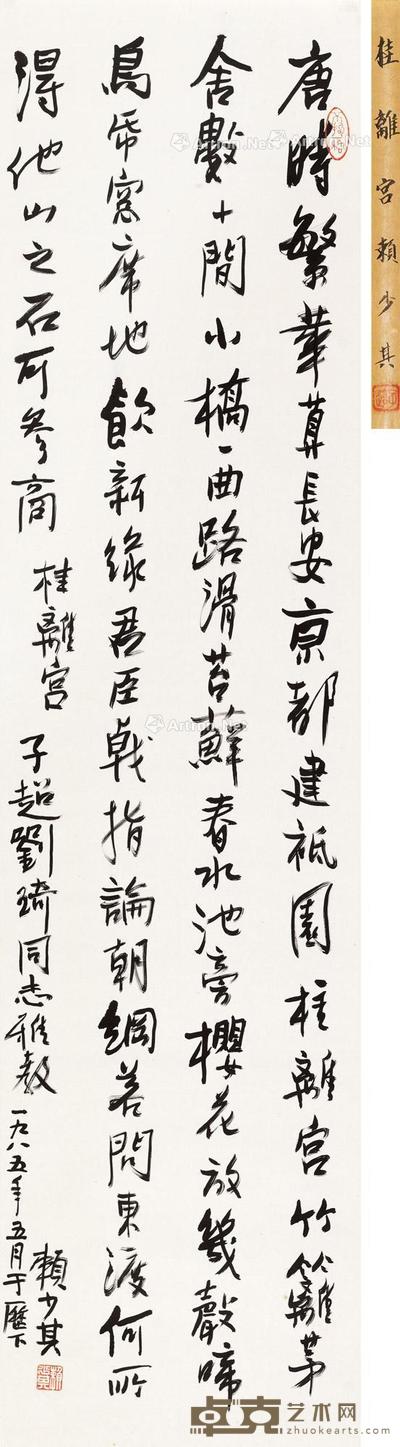 桂離宮賴少其
唐時繁華算長安京都建祗園桂離宮竹籬茅
舍數十間小橋一曲路滑苔蘚春水池旁櫻花放幾聲啼
鳥窓席地飲新緑君臣戟指論朝綱若問東渡何所
得他山之石可參商
桂離宮
子超劉琦同志雅教
一九八五年五月于歷下
賴少其
Artron.Net
卓克艺术网
zhuokearts.com